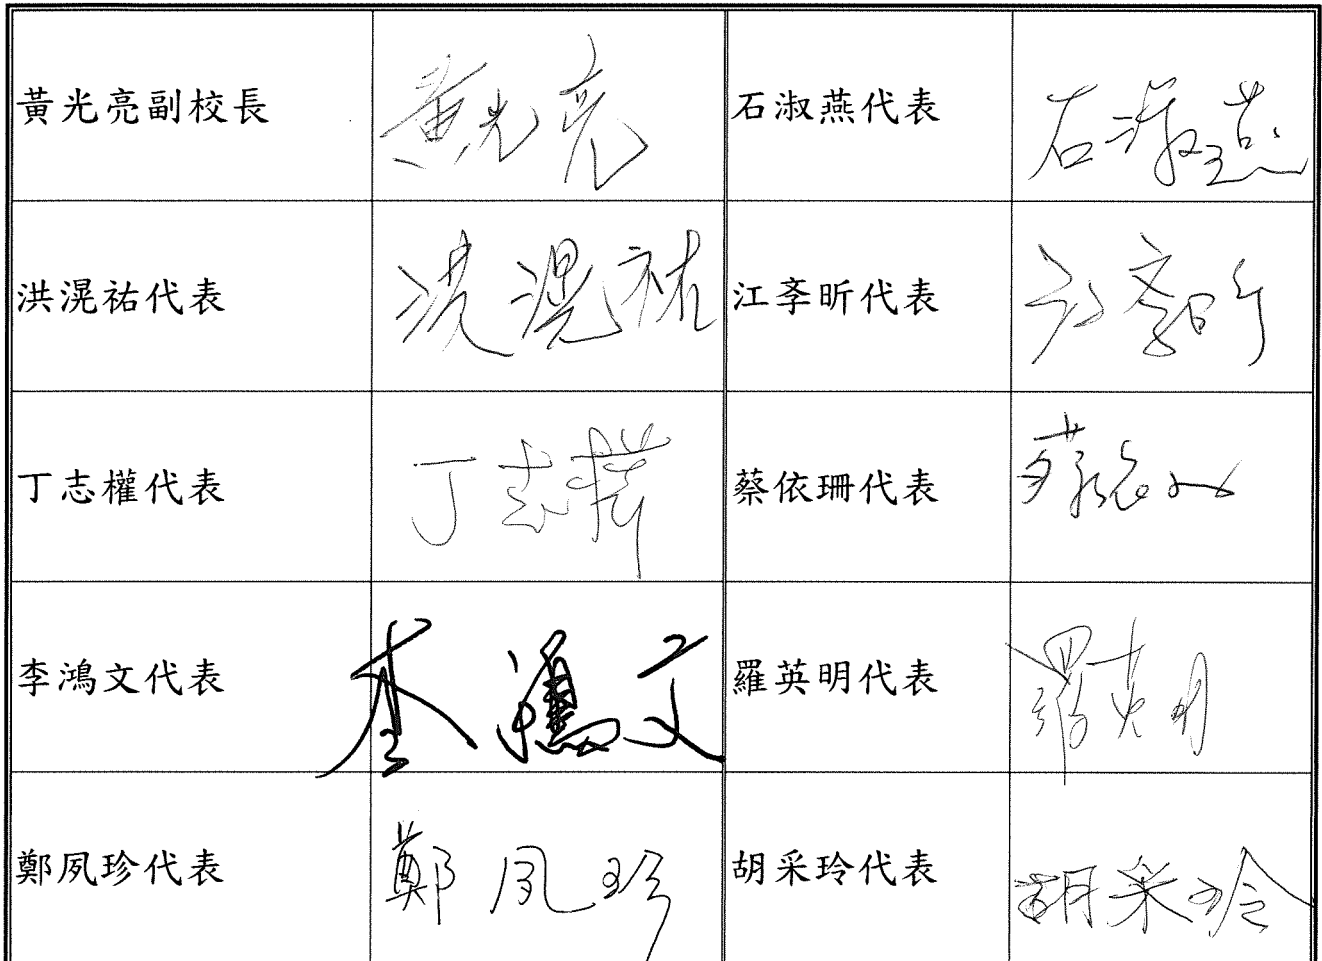 黃光亮副校長 黃光亮 石淑燕代表 石淑燕
洪滉祐代表 洪滉祐 江李昕代表 江李昕
丁志權代表 丁志權 蔡依珊代表 蔡依珊
李鴻文代表 李鴻文 羅英明代表 羅英明
鄭夙珍代表 鄭夙珍 胡采玲代表 胡采玲